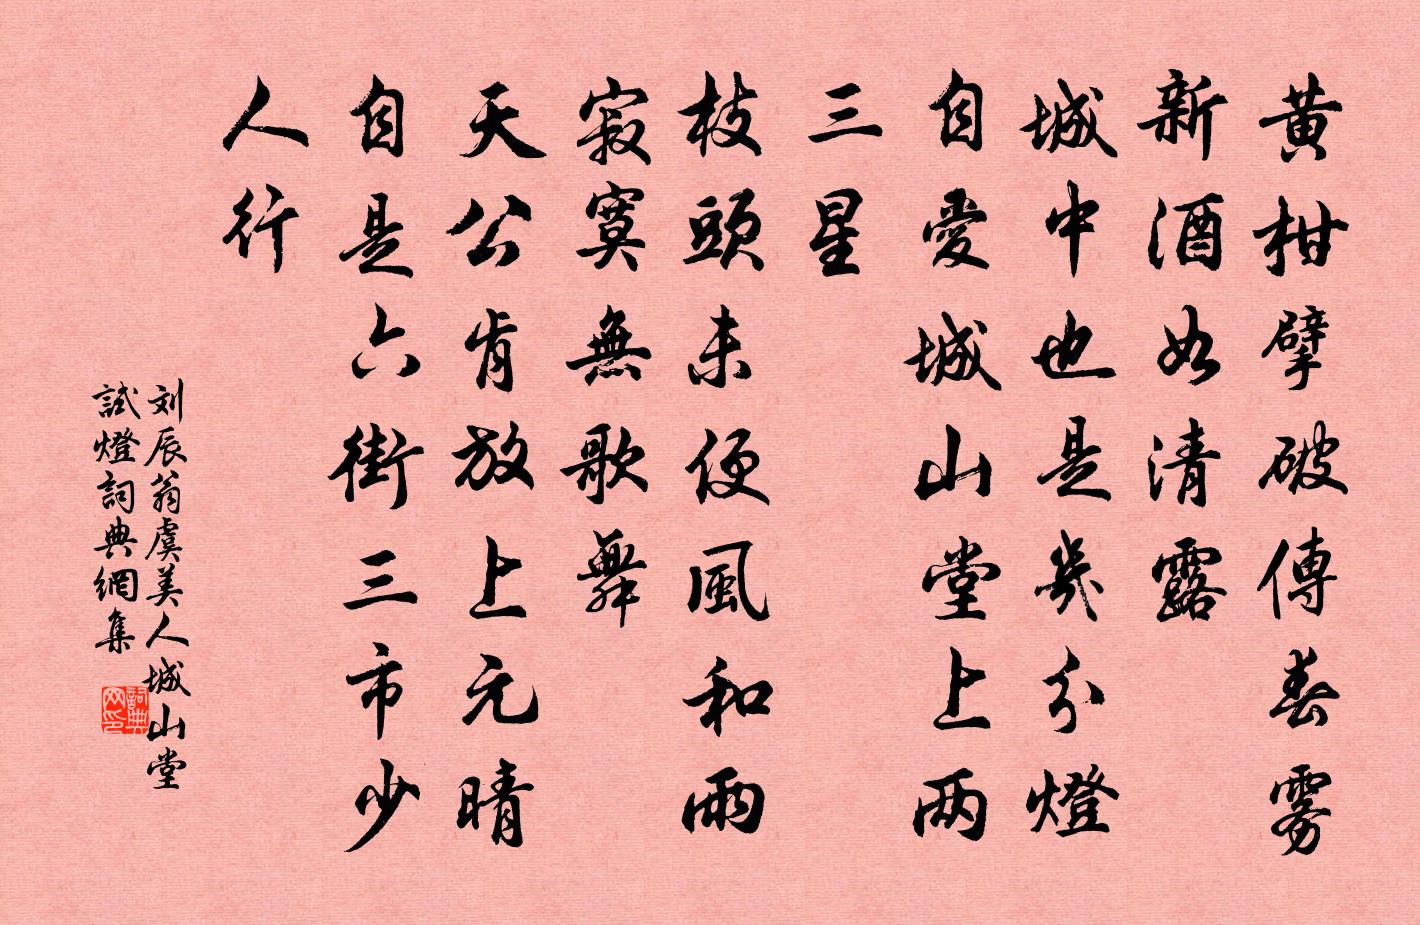 黄柑擘破傳春雾
新酒如清露
城中也是幾分燈
自愛城山堂上两
三星
枝頭未便風和雨
寂寞無歌舞
天公肯放上元晴
自是六街三市少
人行
刘辰翁虞美人城山堂
試燈詞典網集
詞典
网印